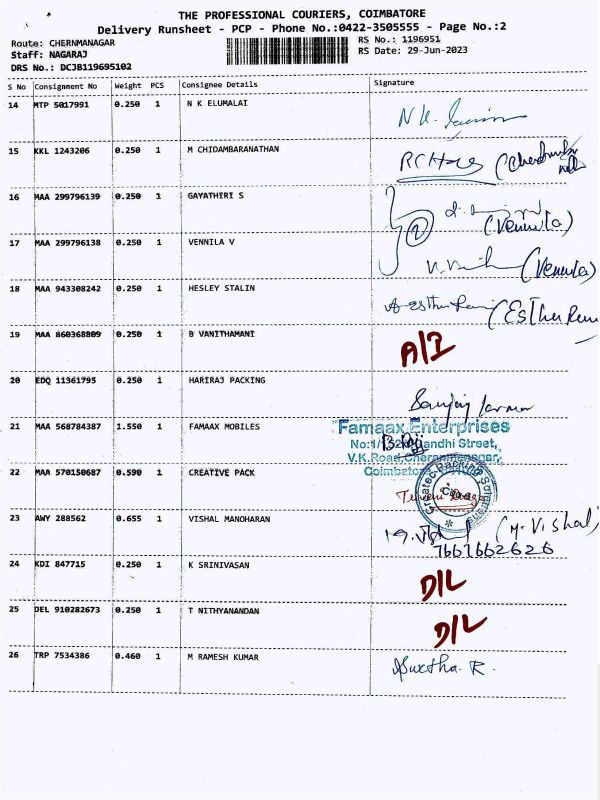 THE PROFESSIONAL COURIERS, COIMBATORE
Delivery Runsheet - PCP - Phone No.:0422-3505555 - Page No.:2
Route: CHERNMANAGAR
RS No.: 1196951
Staff: NAGARAJ
RS Date: 29-Jun-2023
DRS No.: DCJB119695102
S No Consignment No Weight PCS Consignee Details Signature
14 MTP 5017991 0.250 1 N K ELUMALAI
15 KKL 1243206 0.250 1 M CHIDAMBARANATHAN
16 MAA 299796139 0.250 1 GAYATHIRI S (Vennila)
17 MAA 299796138 0.250 1 VENNILA V (Vennila)
18 MAA 943308242 0.250 1 HESLEY STALIN
19 MAA 860368809 0.250 1 B VANITHAMANI A/I
20 EDQ 11361795 0.250 1 HARIRAJ PACKING
21 MAA 568784387 1.550 1 FAMAAX MOBILES
Famaax Enterprises
Gandhi Street,
V.K.Road,
22 MAA 570150687 0.590 1 CREATIVE PACK
23 AWY 288562 0.655 1 VISHAL MANOHARAN (M. Vishal)
7667662626
24 KDI 847715 0.250 1 K SRINIVASAN D/L
25 DEL 910282673 0.250 1 T NITHYANANDAN D/L
26 TRP 7534386 0.460 1 M RAMESH KUMAR